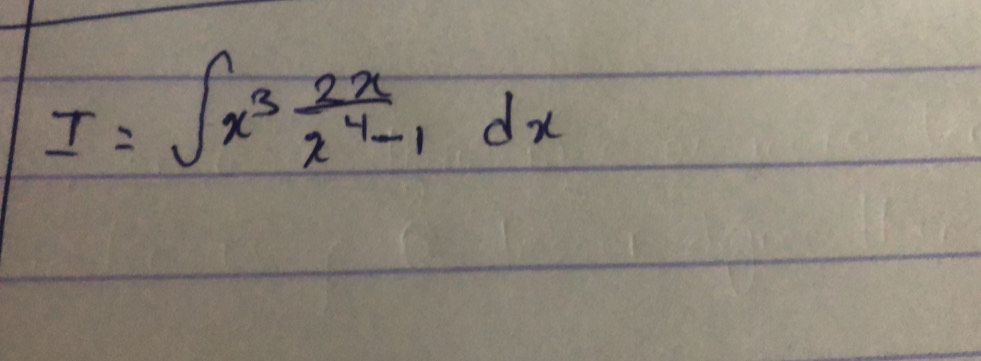 I = ∫x³ 2x/(x⁴-1) dx